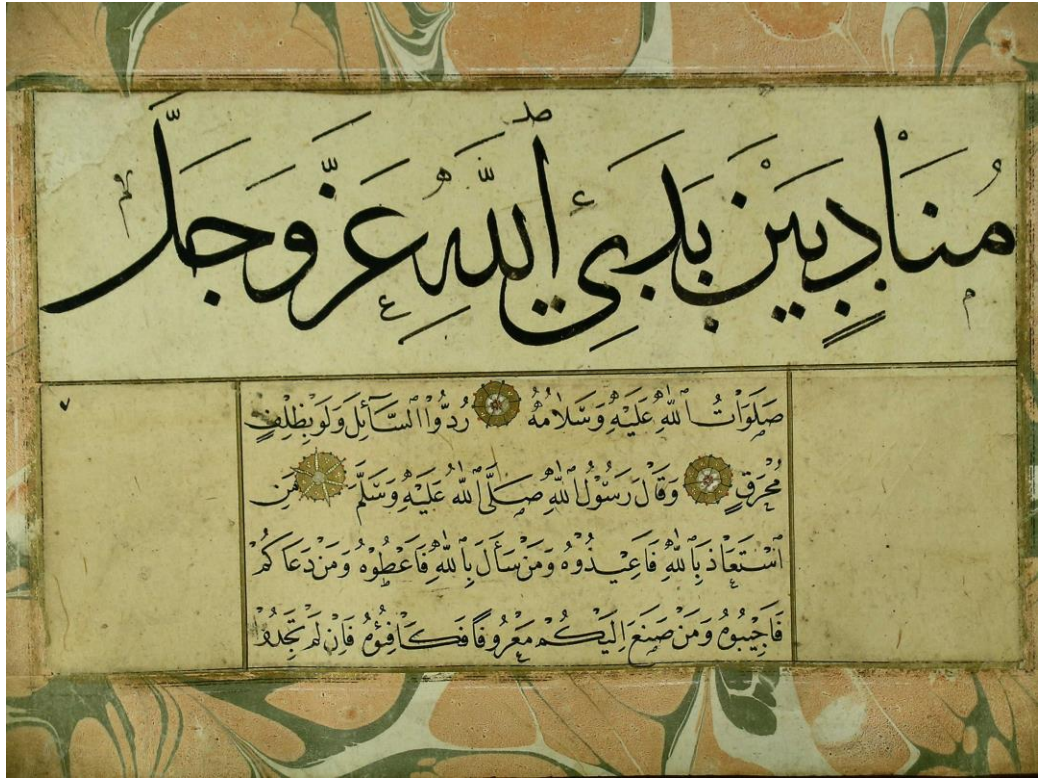 مُنَادٍ بَيْنَ يَدَيِ ٱللَّهِ عَزَّ وَجَلَّ
صَلَوَاتُ ٱللهِ عَلَيْهِ وَسَلَامُهُ رُدُّوا السَّآئِلَ وَلَوْ بِظِلْفٍ
مُحْرَقٍ وَقَالَ رَسُوْلُ ٱللهِ صَلَّى ٱللهُ عَلَيْهِ وَسَلَّمَ مَنِ
ٱسْتَعَاذَ بِٱللهِ فَاَعِيْذُوْهُ وَمَنْ سَأَلَ بِٱللهِ فَاَعْطُوْهُ وَمَنْ دَعَاكُمْ
فَاَجِيْبُوْهُ وَمَنْ صَنَعَ اِلَيْكُمْ مَعْرُوفًا فَكَافِئُوْهُ فَاِنْ لَمْ تَجِدُوا
٧